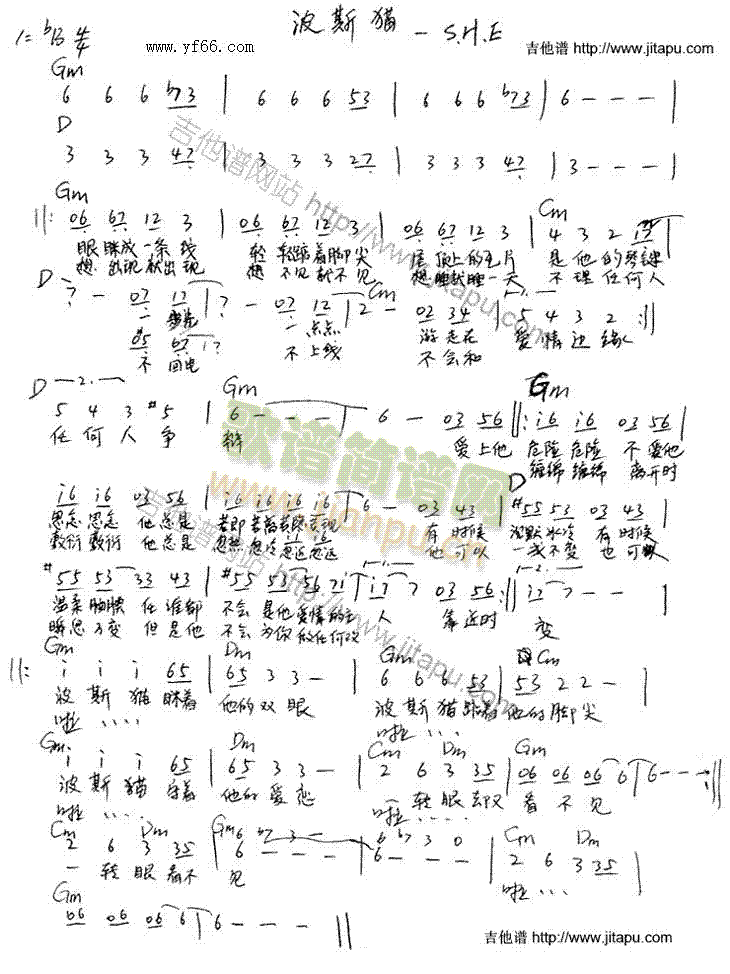 波斯猫 - S.H.E
www.yf66.com
吉他谱 http://www.jitapu.com
1=ᵇB 4/4
Gm
6 6 6 ᵇ73 | 6 6 6 53 | 6 6 6 ᵇ73 | 6 - - - |
D
3 3 3 47 | 3 3 3 27 | 3 3 3 47 | 3 - - - |
Gm Cm
||: 06 67 12 3 | 06 67 12 3 | 06 67 12 3 | 4 3 2 17 |
眼眯成一条线 轻轻踮着脚尖 屋顶上的瓦片 是他的琴键
想出现就出现 想不见就不见 想睡就睡一天 不理任何人
D Cm 1.
7 - 07 12 | 7 - 07 12 | 2 - 02 34 | 5 4 3 2 :||
一步步 一点点 游走在 爱情边缘
05 67 17
不回电 不上线 不会和
D 2. Gm Gm
5 4 3 #5 | 6 - - - | 6 - 03 56 ||: i6 i6 03 56 |
任何人争 辩 爱上他 危险危险 不爱他
缠绵缠绵 离开时
D
i6 i6 03 56 | i6 i6 i6 i6 | 6 - 03 43 | #55 53 03 43 |
思念思念 他总是 若即若离若隐若现 有时候 沉默冰冷 有时候
敷衍敷衍 他总是 忽热忽冷忽近忽远 他可以 一成不变 也可以
1. 2.
#55 53 33 43 | #55 53 56 7i | i7 7 03 56 :|| i7 7 - - |
温柔腼腆 任谁都 不会是他爱情的主 人 靠近时 变
瞬息万变 但是他 不会为你做任何改
Gm Dm Gm Cm
||: i i i 65 | 65 3 3 - | 6 6 6 53 | 53 2 2 - |
波斯猫眯着 他的双眼 波斯猫踮着 他的脚尖
啦 . . . . 啦 . . . .
Gm Dm Cm Dm Gm
i i i 65 | 65 3 3 - | 2 6 3 35 | 06 06 06 6 | 6 - - - :||
波斯猫守着 他的爱恋 一转眼却又 看不见
啦 . . . . 啦 . . . .
Cm Dm Gm Cm Dm
2 6 3 35 | 6 ᵇ7 3 - | 6 ᵇ7 3 0 | 2 6 3 35 |
6 - - - | 6 - - -
一转眼看不 见 啦 . . .
Gm
06 06 06 6 | 6 - - - ||
吉他谱 http://www.jitapu.com
吉他谱网站 http://www.jitapu.com
歌谱简谱网
www.jianpu.cn
吉他谱网站 http://www.jitapu.com